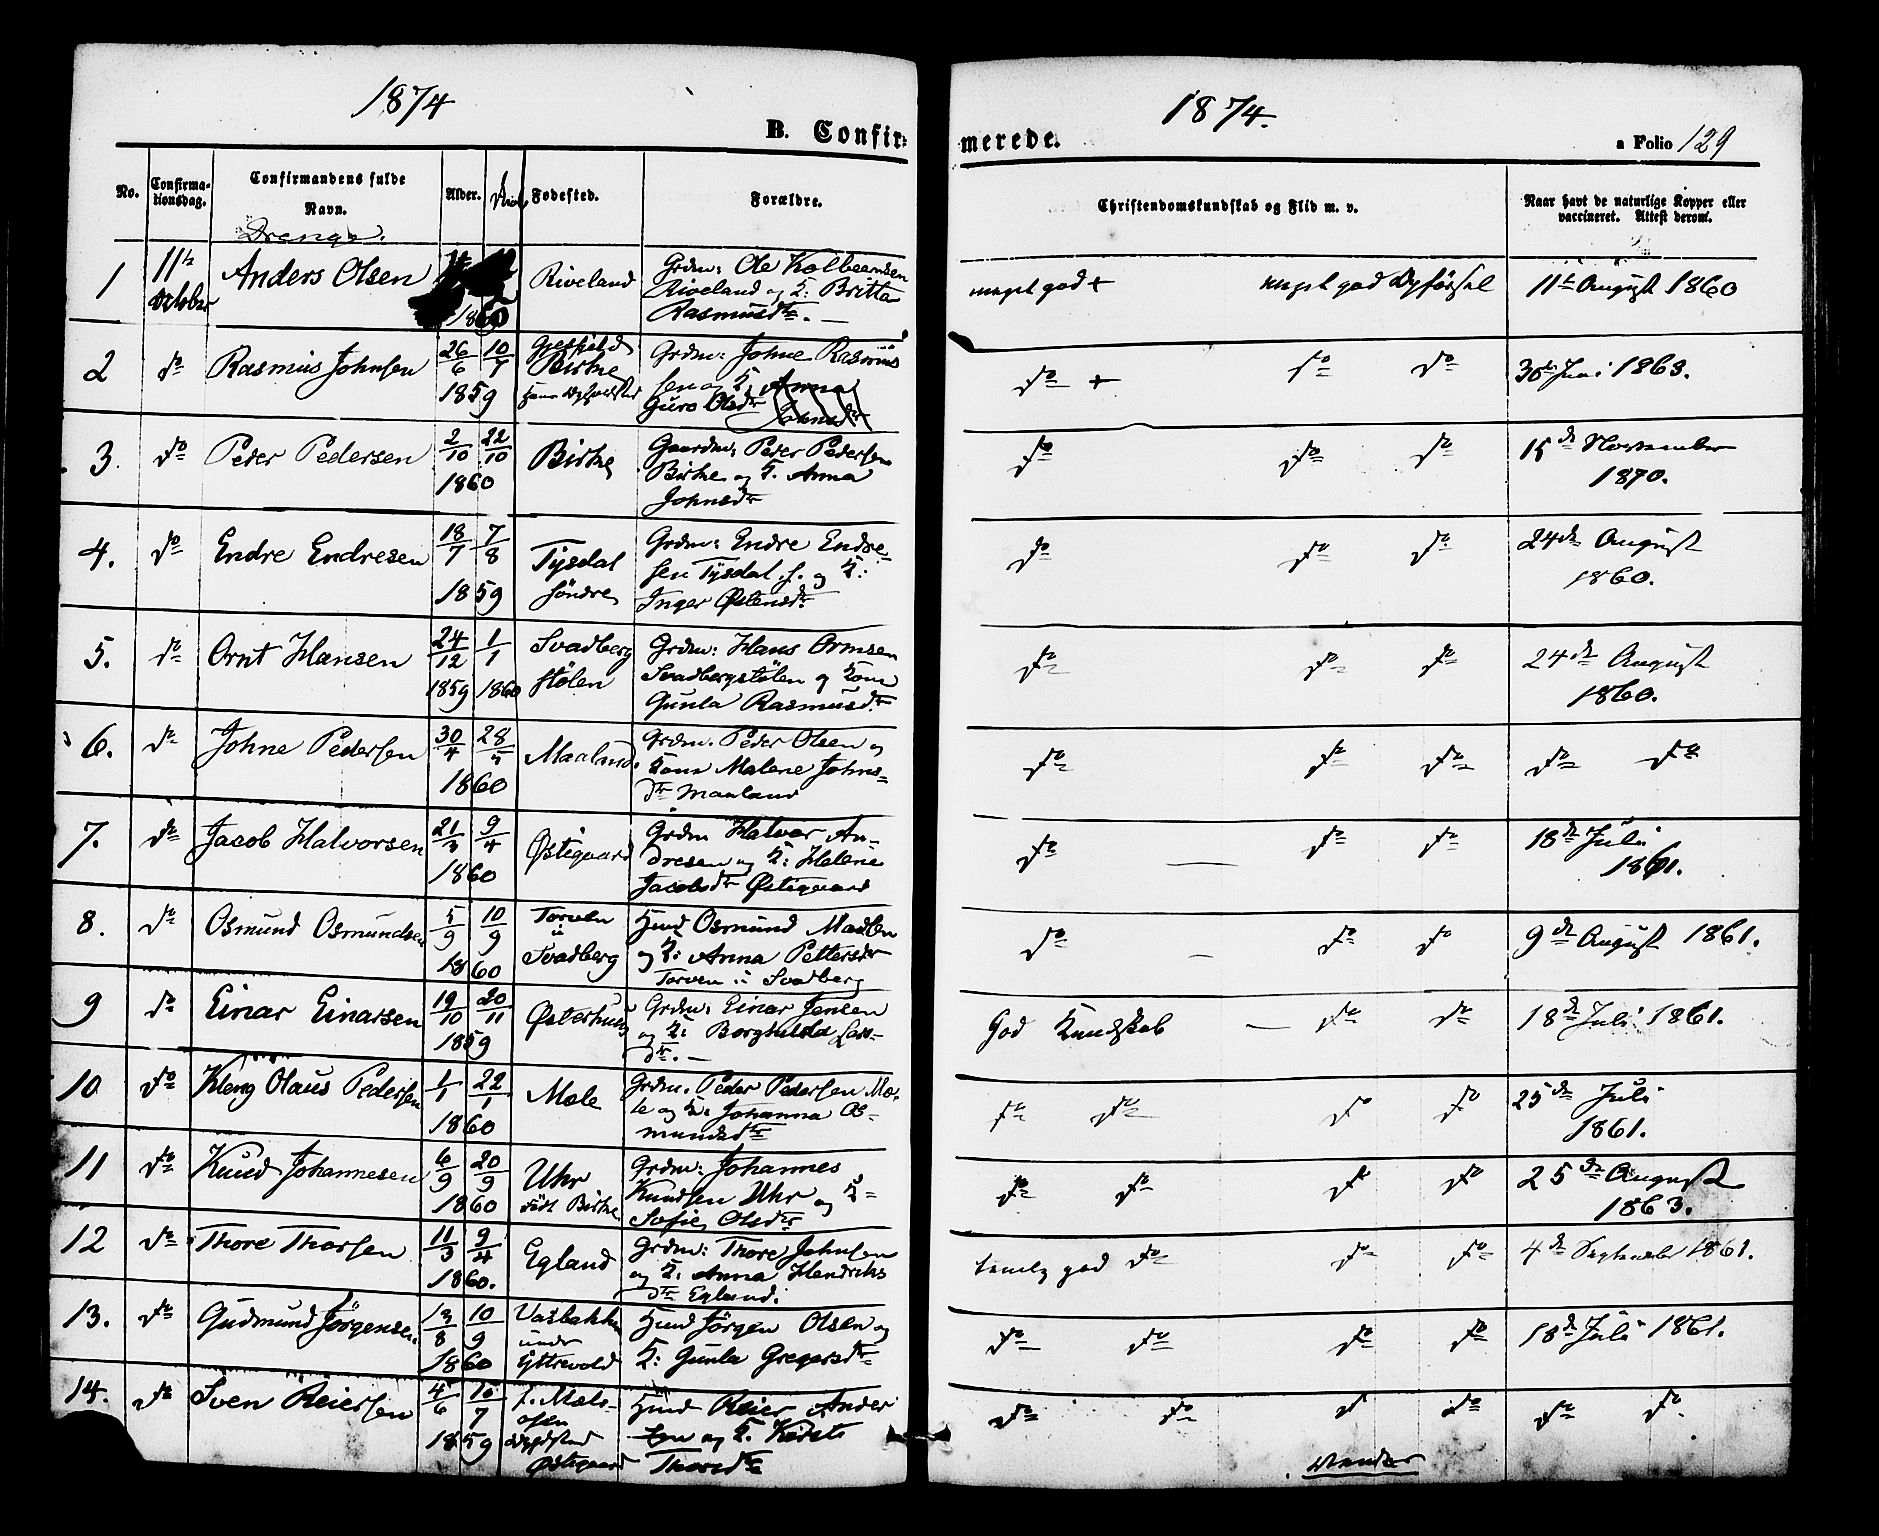 1874
1874.
B. Confir-
merede.
a Folio 129
No.
Confirma-
tionsdag.
Confirmandens fulde
Navn.
Drenge.
Alder.
Fødested.
Forældre.
Christendomskundskab og Flid m. v.
Naar havt de naturlige Kopper eller
vaccineret. Attest derom.
1
11te
October
Anders Olsen
1860
Riveland
Grdm: Ole Kolbeensen
Riveland og K: Britta
Rasmusdtr. —
meget god +
meget god Opførsel
11te August 1860
2
do
Rasmus Johnsen
26/6 10/7
1859
Birke
Grdm: Johne Rasmus
sen og K. Anna
Guro Olsdtr Johnsdtr
do + do do
30te Juni 1863.
3.
do
Peder Pedersen
2/10 22/10
1860
Birke
Gaardm: Peder Pedersen
Birke og K. Anna
Johnsdtr
do do do
15de November
1870.
4.
do
Endre Endresen
18/7 7/8
1859
Tysdal
søndre
Grdm: Endre Endre-
sen Tysdal s. og K:
Inger Østensdtr
do do do
24de August
1860.
5.
do
Ornt Hansen
24/12 1/1
1859 1860
Svadberg
Stølen
Grdm: Hans Ormsen
Svadbergstølen og Kone
Gunla Rasmusdtr
do do do
24de August
1860.
6.
do
Johne Pedersen
30/4 28/5
1860
Maaland.
Grdm. Peder Olsen og
Kone Malene Johns-
dtr Maaland
do do do do do
7.
do
Jacob Halvorsen
21/3 9/4
1860
Østigaard
Grdm Halvor An-
dresen og K: Helene
Jacobsdtr Østigaard
do — do do
18de Juli
1861.
8.
do
Osmund Osmundsen
5/9 10/9
1860
Torven
u
Svadberg
Huud Osmund Madsen
og K: Anna Pettersdtr
Torven u Svadberg
do — do do
9de August 1861.
9
do
Einar Einarsen
19/10 20/11
1859
Østerhuus
Grdm: Einar Jensen
og K: Borghilda Lars-
dtr. —
God Kundskab — do do
18de Juli 1861.
10
do
Kleng Olaus Pedersen
1/1 22/1
1860
Mæle
Grdm. Peder Pedersen Mæ-
le og K: Johanna Os-
mundsdtr
do do do do
25de Juli
1861.
11
do
Knud Johannesen
6/9 20/9
1860
Uhr
født Birke
Grdm: Johannes
Knudsen Uhr og K-
Sofie Olsdtr
do do do do
25de August
1863.
12
do
Thore Thorsen
11/3 9/4
1860.
Egland
Grdm: Thore Johnsen
og K. Anna Hendriks
dtr Egland.
temlg god do do do
4de September 1861.
13.
do
Gudmund Jørgensen
13/8 10/9
1860
Vasbakken
under
Yttrevold
Huud Jørgen Olsen og
K: Gunla Gregersdtr
do do do do
18de Juli 1861.
14.
do
Sven Reiersen
4/6 16/7
1859
f. Mæls-
osen
Østigaard
Huud Reier Ander
sen og K. Kirste
Thorsdtr
do do do do do do
Vender